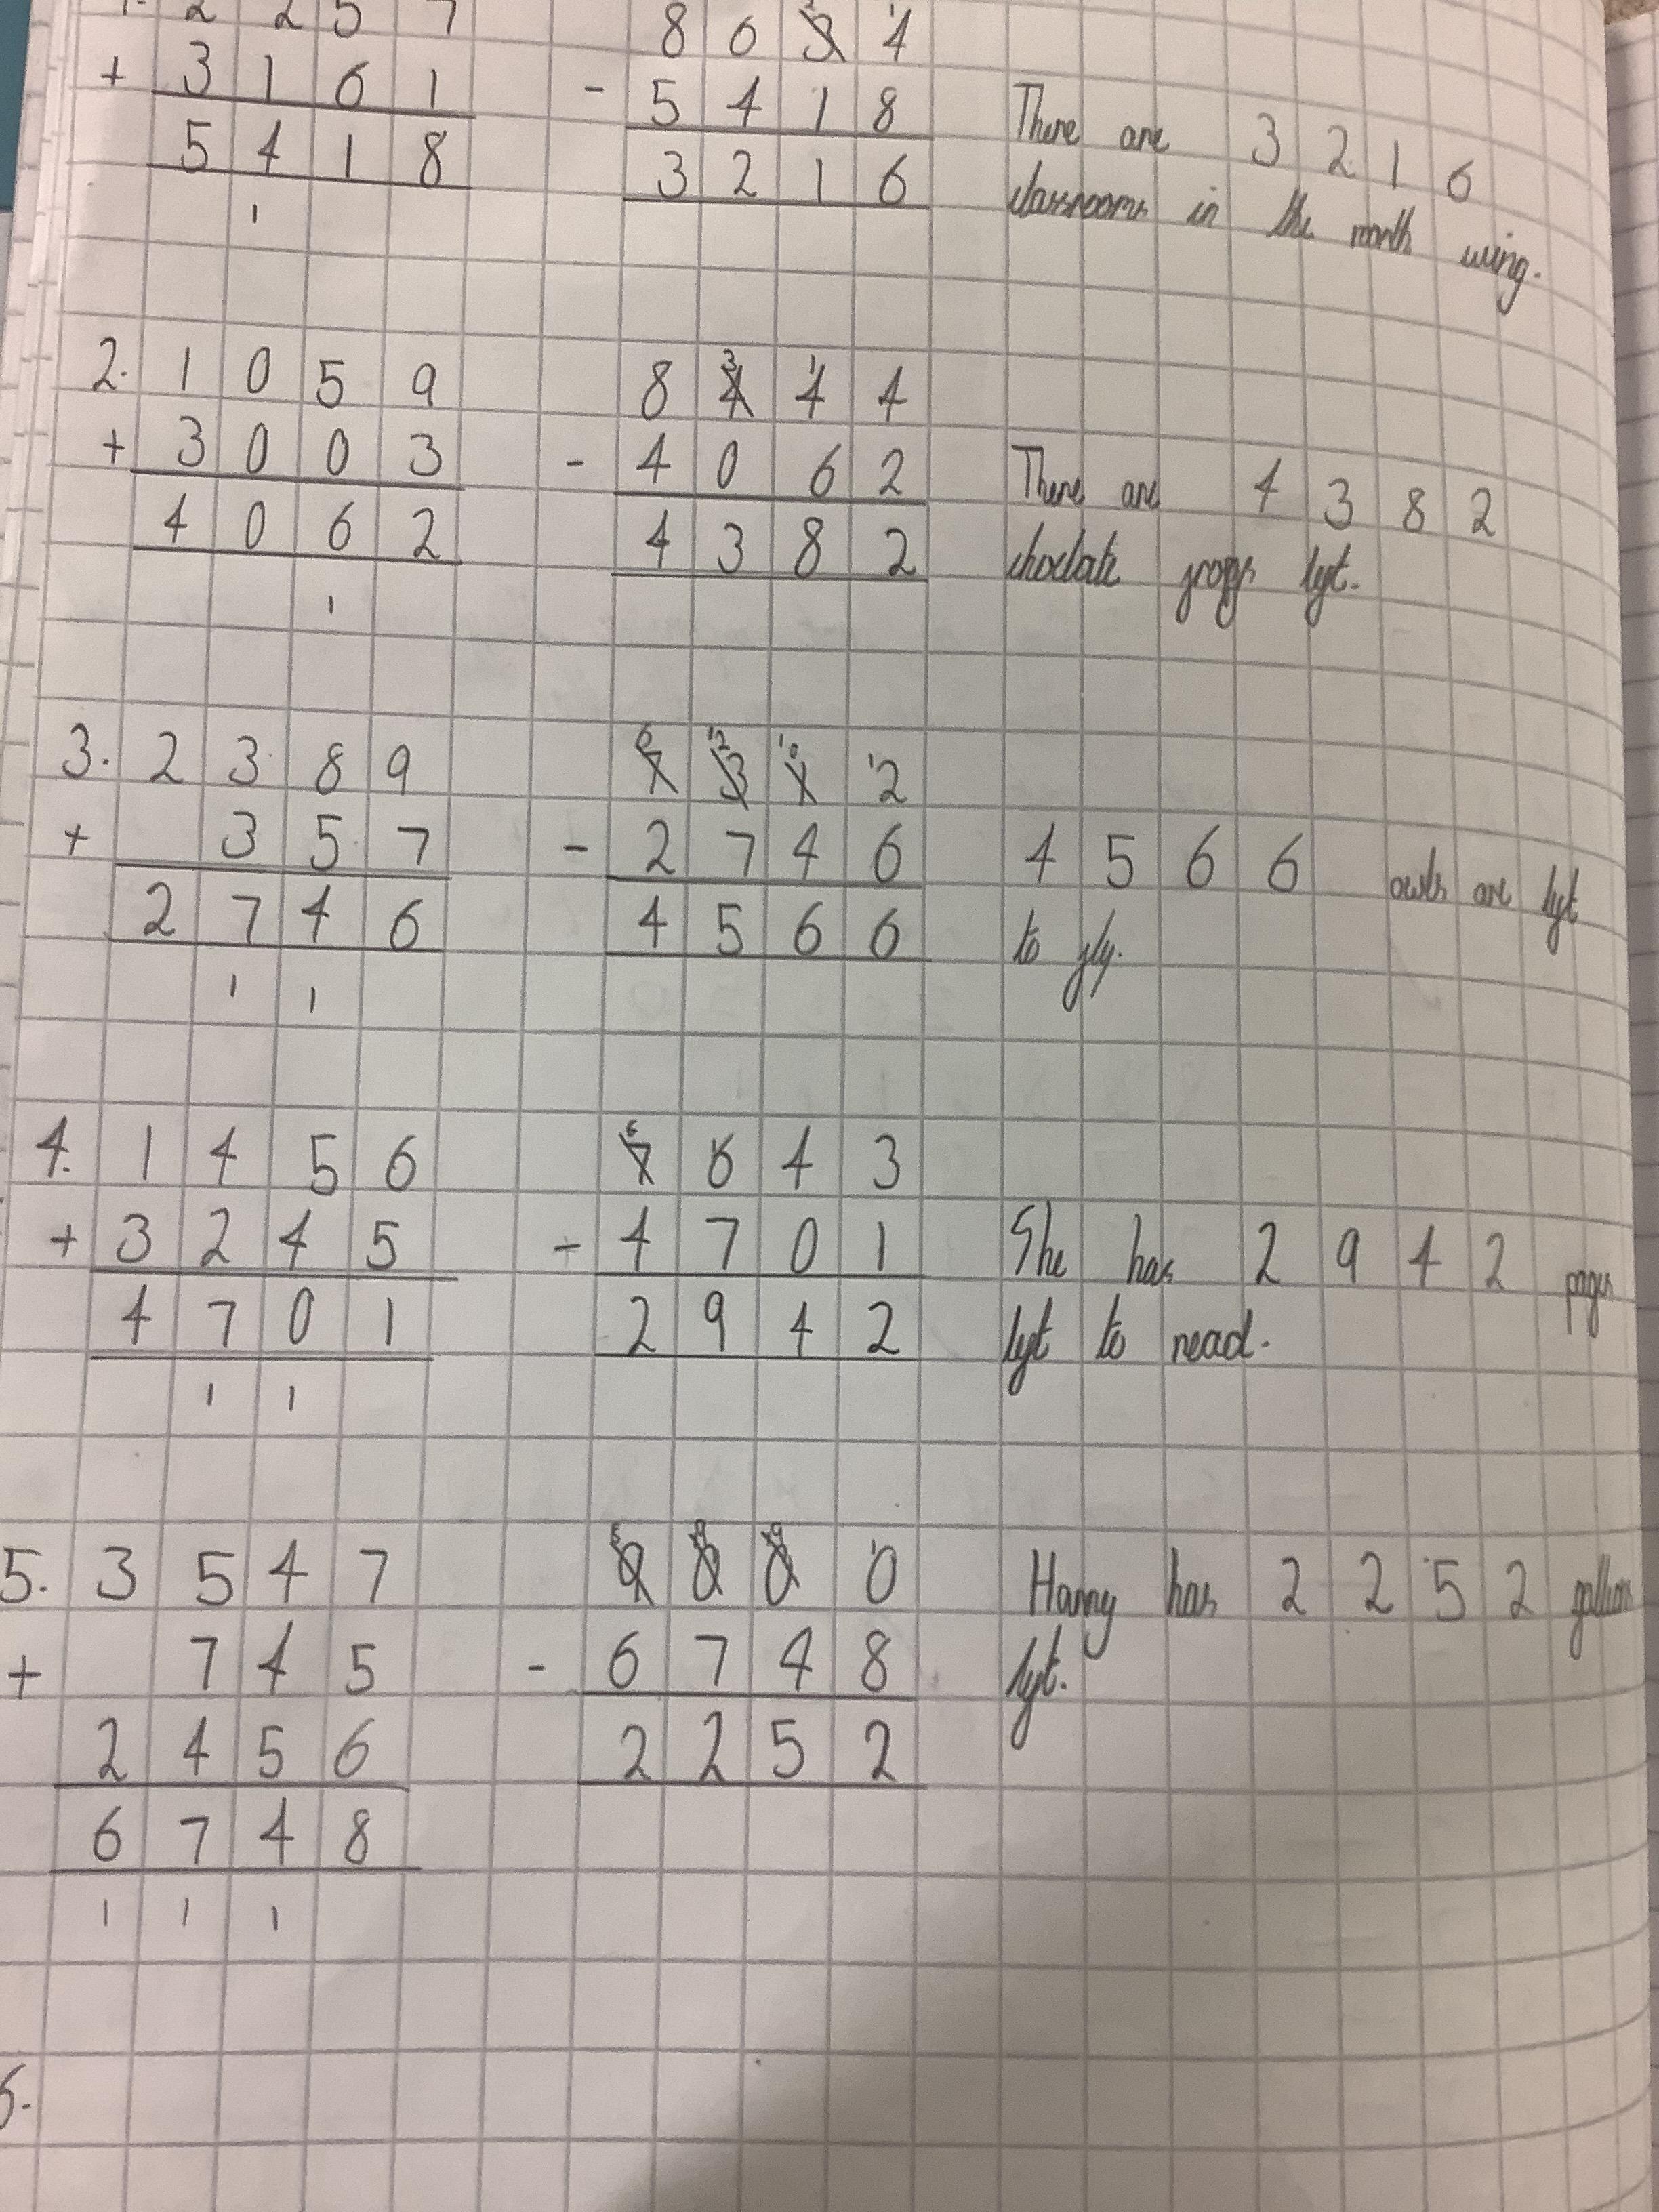 1. 2 2 5 7
+ 3 1 6 1
5 4 1 8
1
8 6 3 4
- 5 4 1 8
3 2 1 6
There are 3 2 1 6
classrooms in the north wing.
2. 1 0 5 9
+ 3 0 0 3
4 0 6 2
1
3 1
8 4 4 4
- 4 0 6 2
4 3 8 2
There are 4 3 8 2
choclate frogs left.
3. 2 3 8 9
+ 3 5 7
2 7 4 6
1 1
6 12 10 1
7 3 1 2
- 2 7 4 6
4 5 6 6
4 5 6 6 owls are left
to fly.
4. 1 4 5 6
+ 3 2 4 5
4 7 0 1
1 1
6
7 6 4 3
- 4 7 0 1
2 9 4 2
She has 2 9 4 2 pages
left to read.
5. 3 5 4 7
+ 7 4 5
2 4 5 6
6 7 4 8
1 1 1
9 0 0 0
- 6 7 4 8
2 2 5 2
Harry has 2 2 5 2
left.
6.